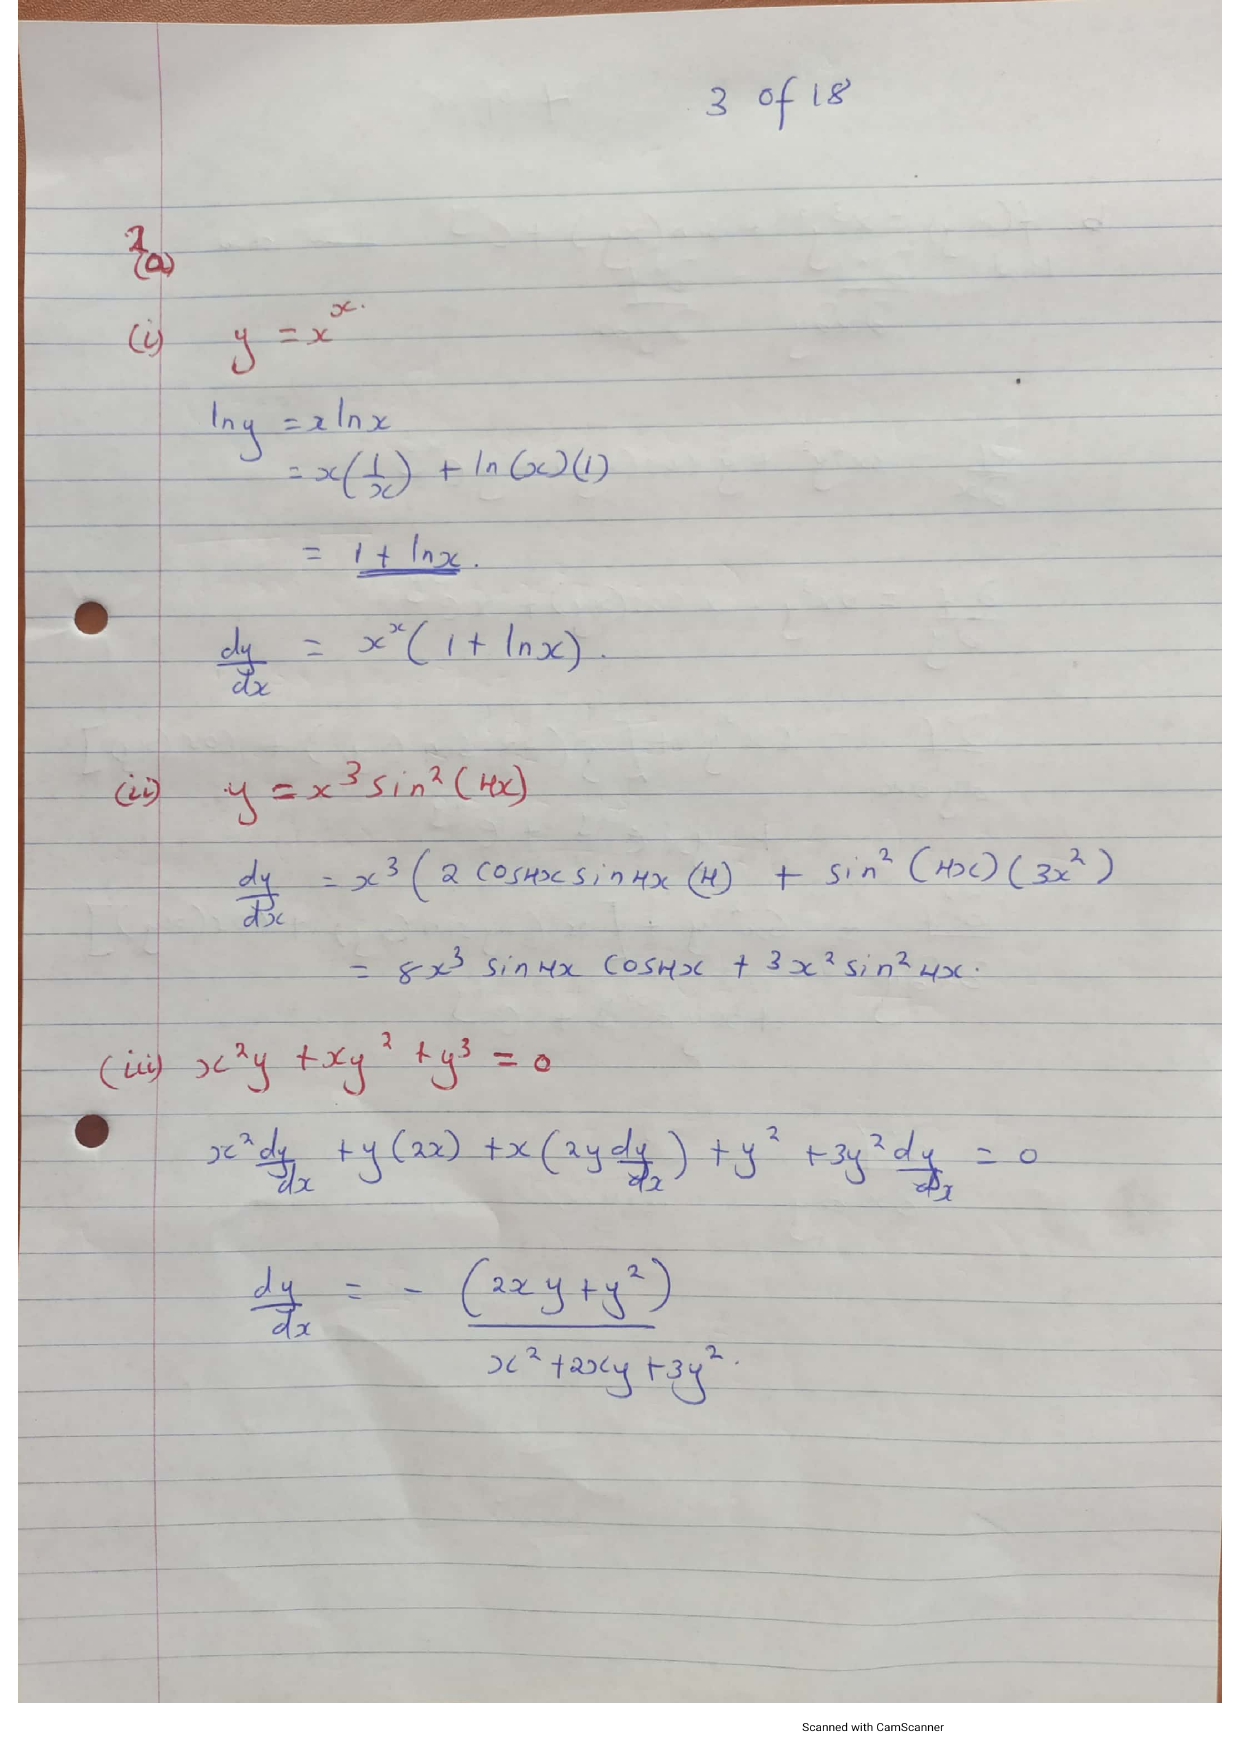 3 of 18
1
(a)
(i) y = x^x.
ln y = x ln x
= x(1/x) + ln(x)(1)
= 1 + ln x.
dy/dx = x^x(1 + ln x).
(ii) y = x³ sin²(4x)
dy/dx = x³(2 cos4x sin4x (4) + sin²(4x)(3x²)
= 8x³ sin4x cos4x + 3x² sin² 4x.
(iii) x²y + xy² + y³ = 0
x² dy/dx + y(2x) + x(2y dy/dx) + y² + 3y² dy/dx = 0
dy/dx = - (2xy + y²)/x² + 2xy + 3y².
Scanned with CamScanner